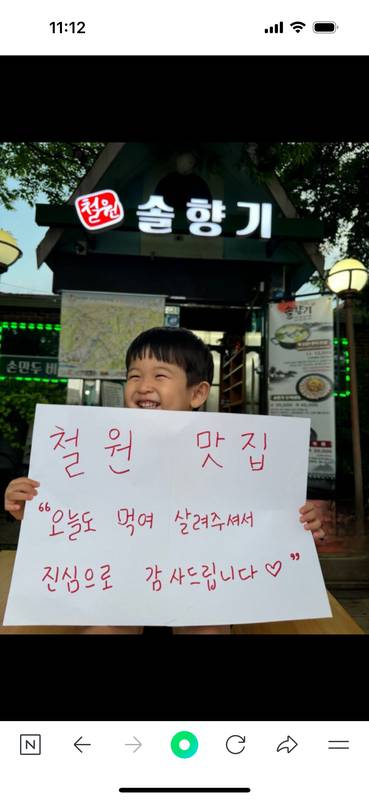 11:12
철원 솔향기
손만두
솔향기
철원 맛집
“오늘도 먹여 살려주셔서
진심으로 감사드립니다♡”
N